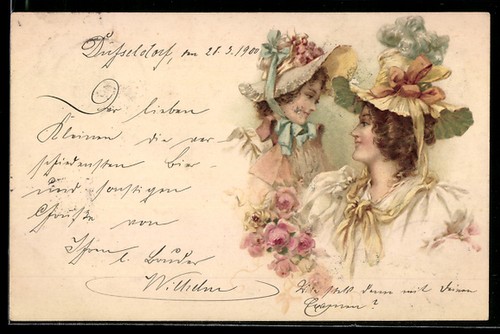 Düsseldorf, am 21.3.1900
Dir lieben
Kleinen die ver-
schiedensten Bier-
und sonstigen
Grüße von
Ihrem l. Bruder
Wilhelm
Wie steht denn mit Deinem
Examen?